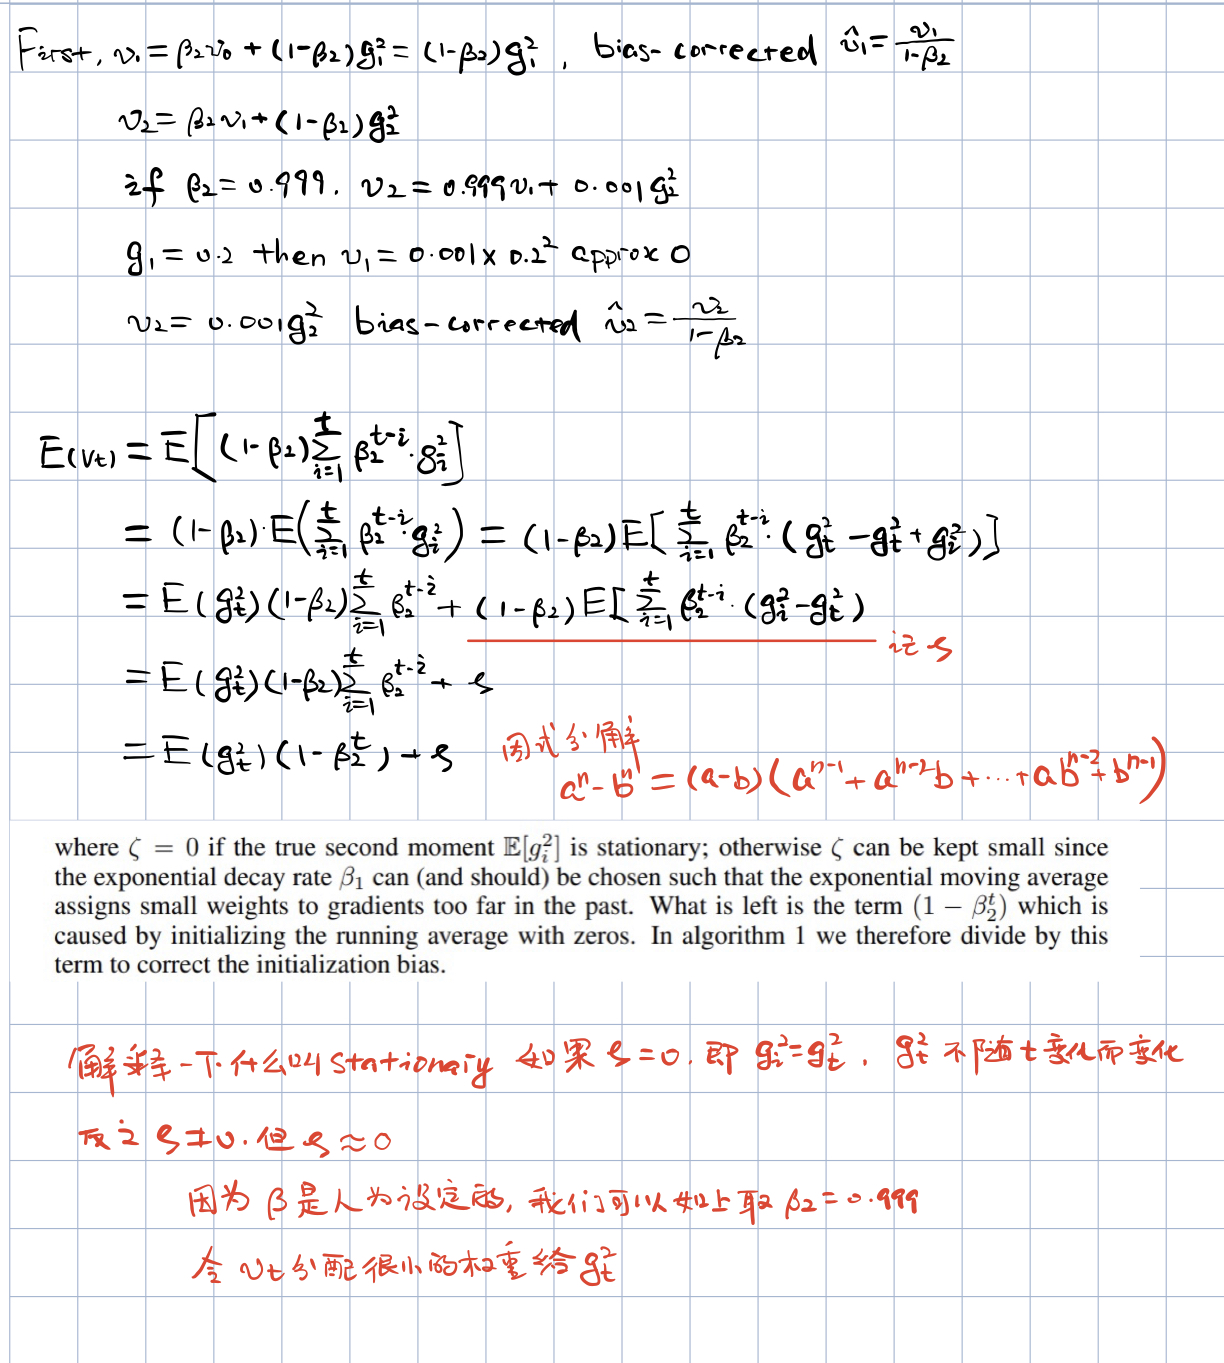 First, v₁ = β₂v₀ + (1-β₂)g₁² = (1-β₂)g₁², bias-corrected v̂₁ = v₁/(1-β₂)
v₂ = β₂v₁ + (1-β₂)g₂²
if β₂ = 0.999. v₂ = 0.999v₁ + 0.001g₂²
g₁ = 0.2 then v₁ = 0.001 × 0.2² approx 0
v₂ = 0.001g₂² bias-corrected v̂₂ = v₂/(1-β₂)
E(Vt) = E[(1-β₂)∑_{i=1}^{t} β₂^{t-i}·g_i²]
= (1-β₂)·E(∑_{i=1}^{t} β₂^{t-i}·g_i²) = (1-β₂)E[∑_{i=1}^{t} β₂^{t-i}·(g_t² - g_t² + g_i²)]
= E(g_t²)(1-β₂)∑_{i=1}^{t} β₂^{t-i} + (1-β₂)E[∑_{i=1}^{t} β₂^{t-i}·(g_i² - g_t²) 记ς
= E(g_t²)(1-β₂)∑_{i=1}^{t} β₂^{t-i} + ς
= E(g_t²)(1-β₂^t) + ς 因式分解
aⁿ - bⁿ = (a-b)(aⁿ⁻¹ + aⁿ⁻²b + ··· + abⁿ⁻² + bⁿ⁻¹)
where ζ = 0 if the true second moment 𝔼[g_i²] is stationary; otherwise ζ can be kept small since
the exponential decay rate β₁ can (and should) be chosen such that the exponential moving average
assigns small weights to gradients too far in the past. What is left is the term (1 − β₂^t) which is
caused by initializing the running average with zeros. In algorithm 1 we therefore divide by this
term to correct the initialization bias.
解释一下什么叫stationaiy 如果ς=0. 即 g_i²=g_t², g_t² 不随t变化而变化
反之ς≠0. 但ς≈0
因为β是人为设定的, 我们可以如上取β₂=0.999
令 vt 分配很小的权重给g_t²